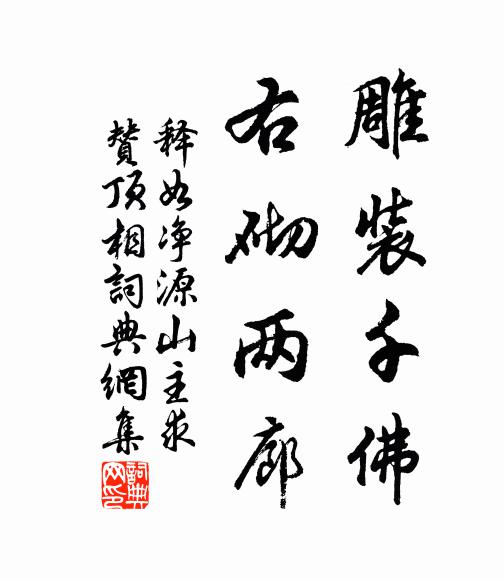 雕装千佛
右砌两廊
释如净源山主求
赞顶相詞典網集
詞典网印